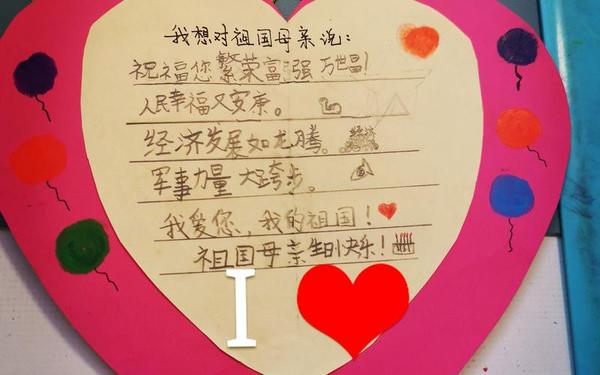 我想对祖国母亲说:
祝福您繁荣富强万世昌!
人民幸福又安康。
经济发展如龙腾。
军事力量大跨步。
我爱您,我的祖国!
祖国母亲生日快乐!
I